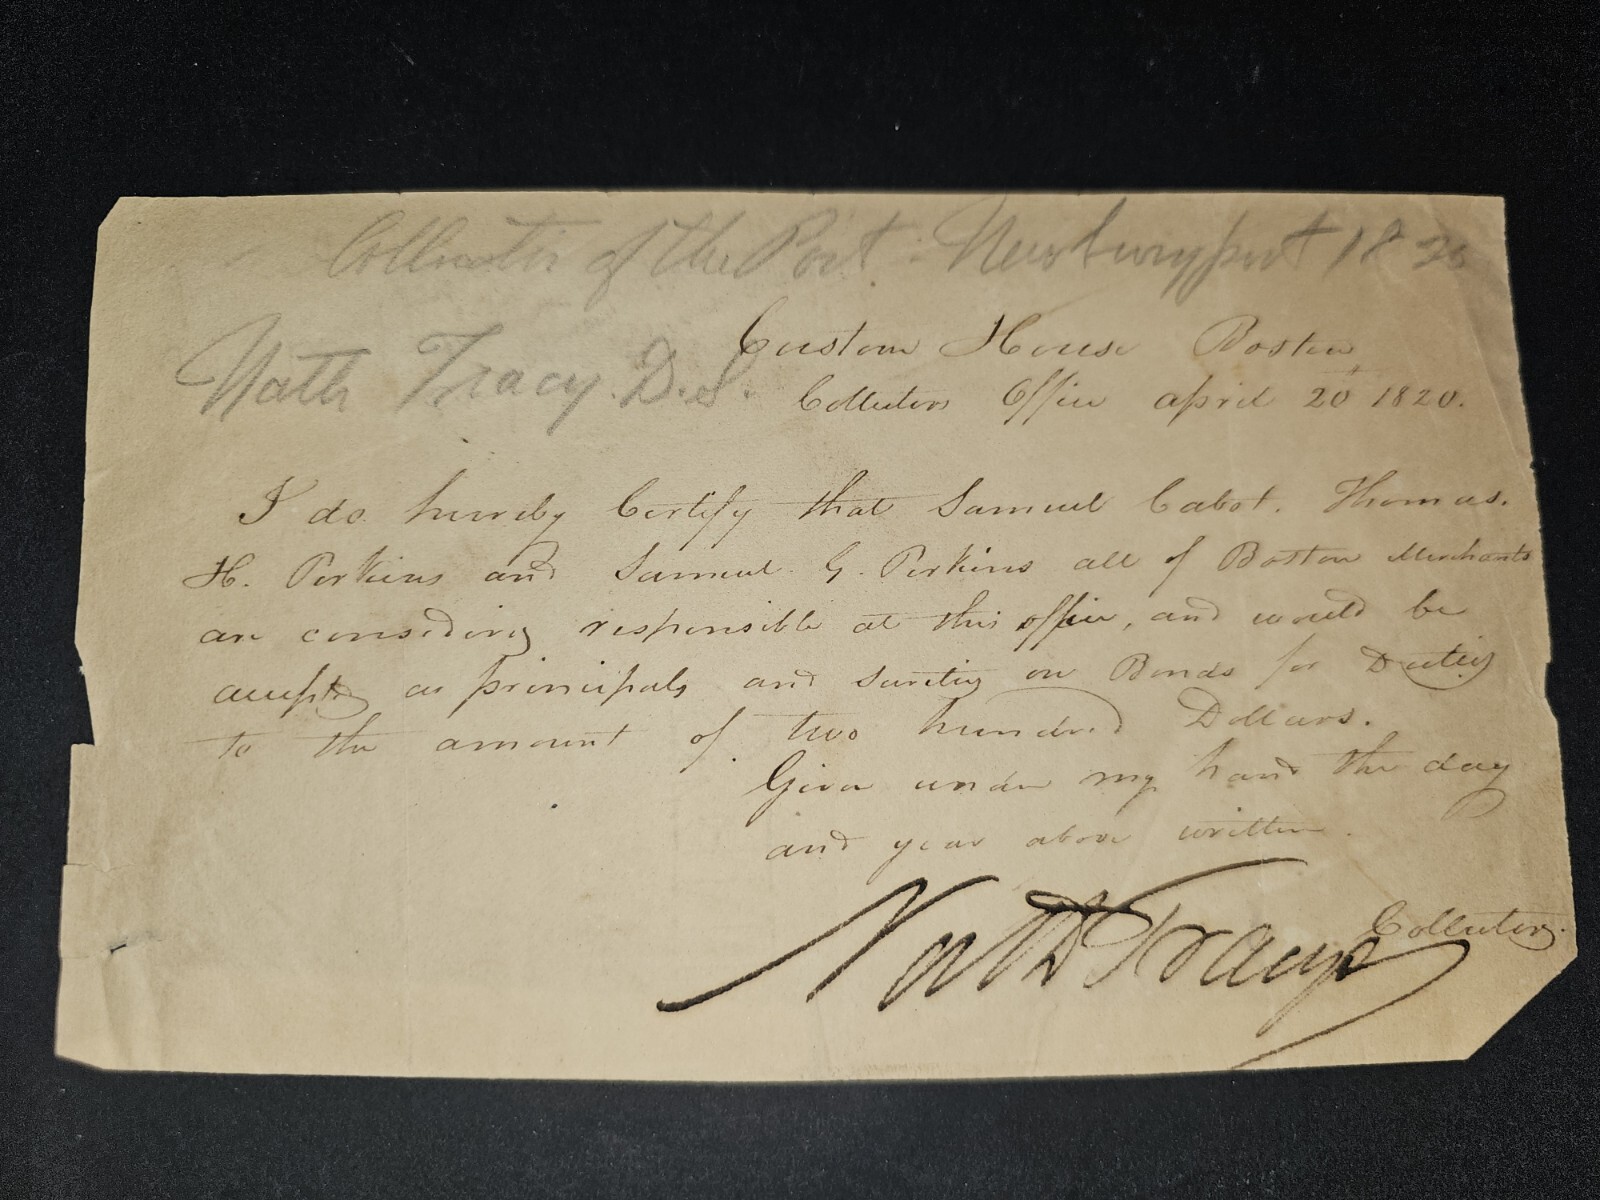 Collector of the Port Newburyport 1820
Nath Tracy. D.S.
Custom House Boston
Collectors Office april 20 1820.
I do hereby Certify that Samuel Cabot. Thomas.
H. Perkins and Samuel. G. Perkins all of Boston Merchants
are considered responsible at this office, and would be
accepted as principals and sureties on Bonds for Duties
to the amount of two hundred Dollars.
Given under my hand the day
and year above written.
Collector.
Nath Tracy